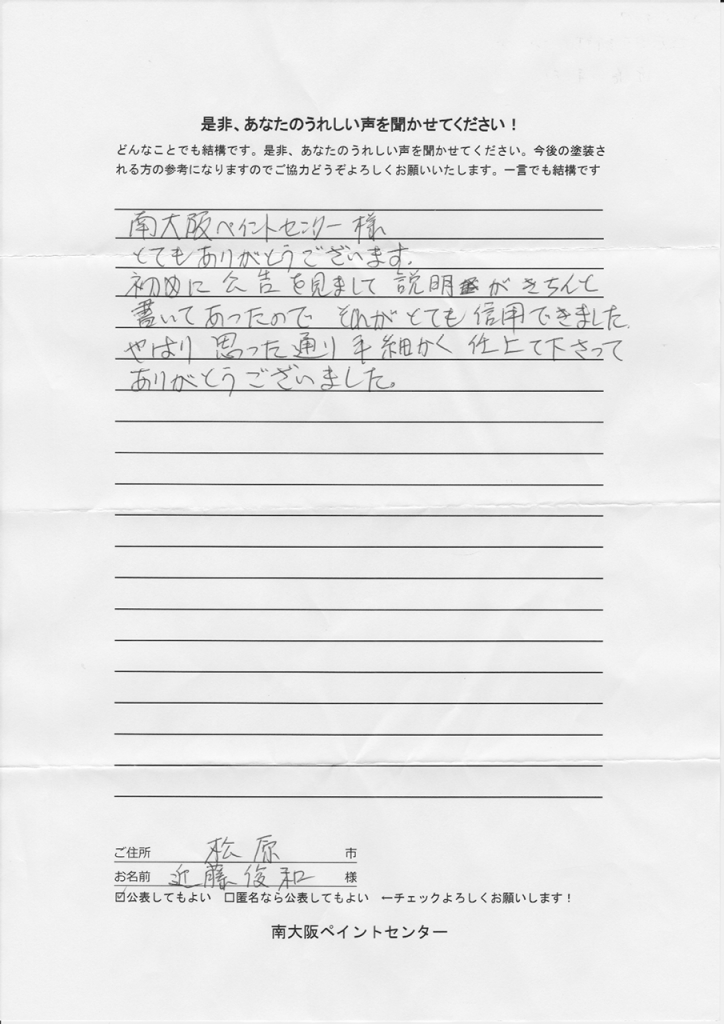 是非、あなたのうれしい声を聞かせてください！
どんなことでも結構です。是非、あなたのうれしい声を聞かせてください。今後の塗装さ
れる方の参考になりますのでご協力どうぞよろしくお願いいたします。一言でも結構です
南大阪ペイントセンター様
とてもありがとうございます。
初めに公告を見まして説明がきちんと
書いてあったのでそれがとても信用できました。
やはり思った通り手細かく仕上て下さって
ありがとうございました。
ご住所 松原 市
お名前 近藤俊和 様
☑公表してもよい □匿名なら公表してもよい ←チェックよろしくお願いします！
南大阪ペイントセンター